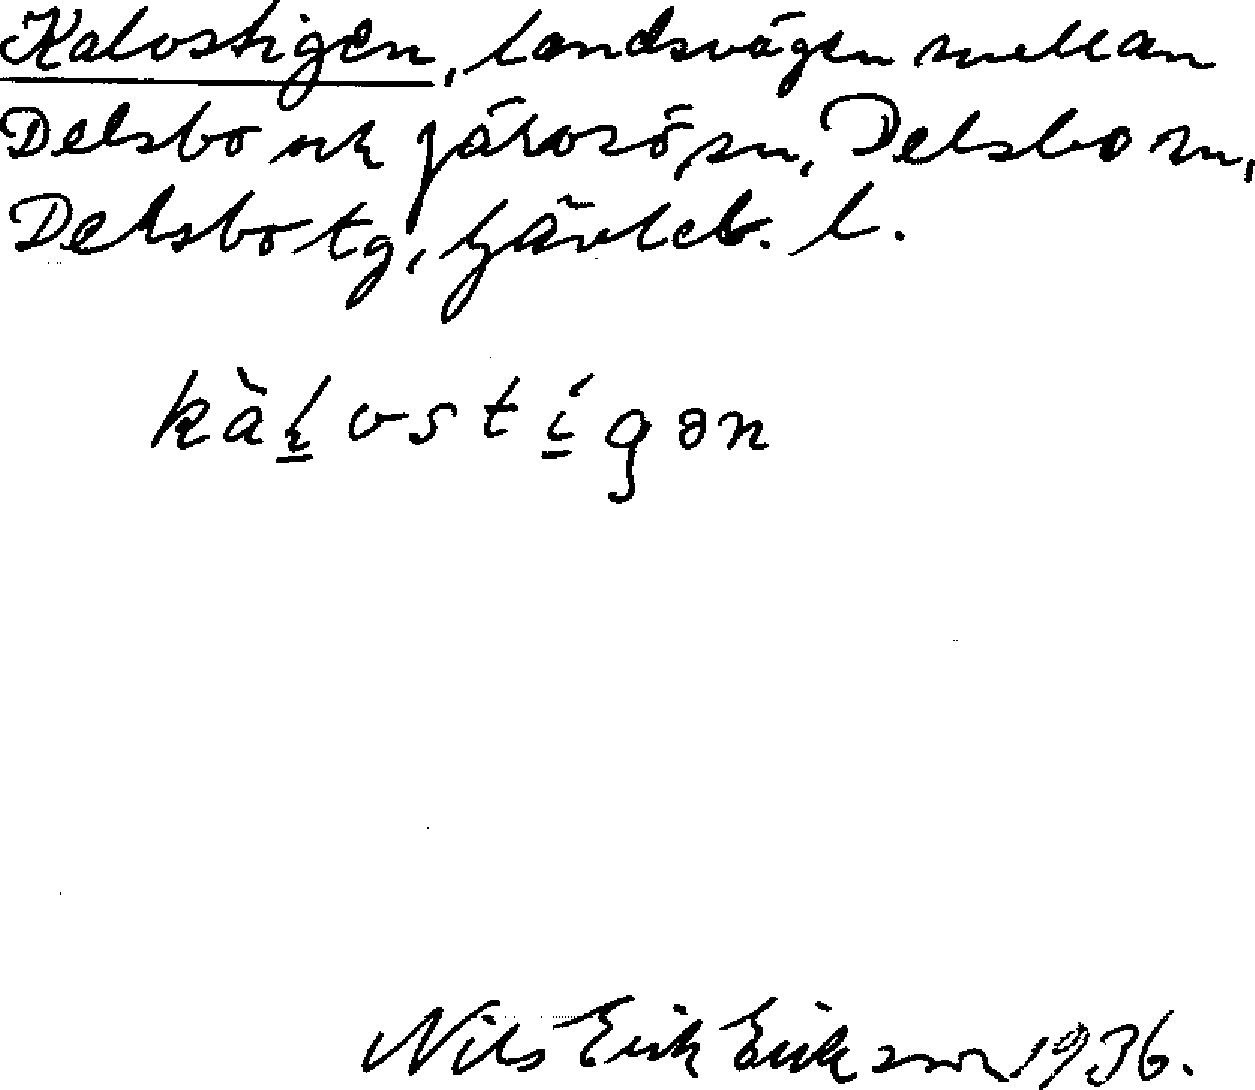 Kalvstigen, landsvägen mellan
Delsbo och Järvsö sn, Delsbo sn,
Delsbo tg, Gävleb. l.
kàl̲vstí̲gən
Nils Erik Erikson 1936.